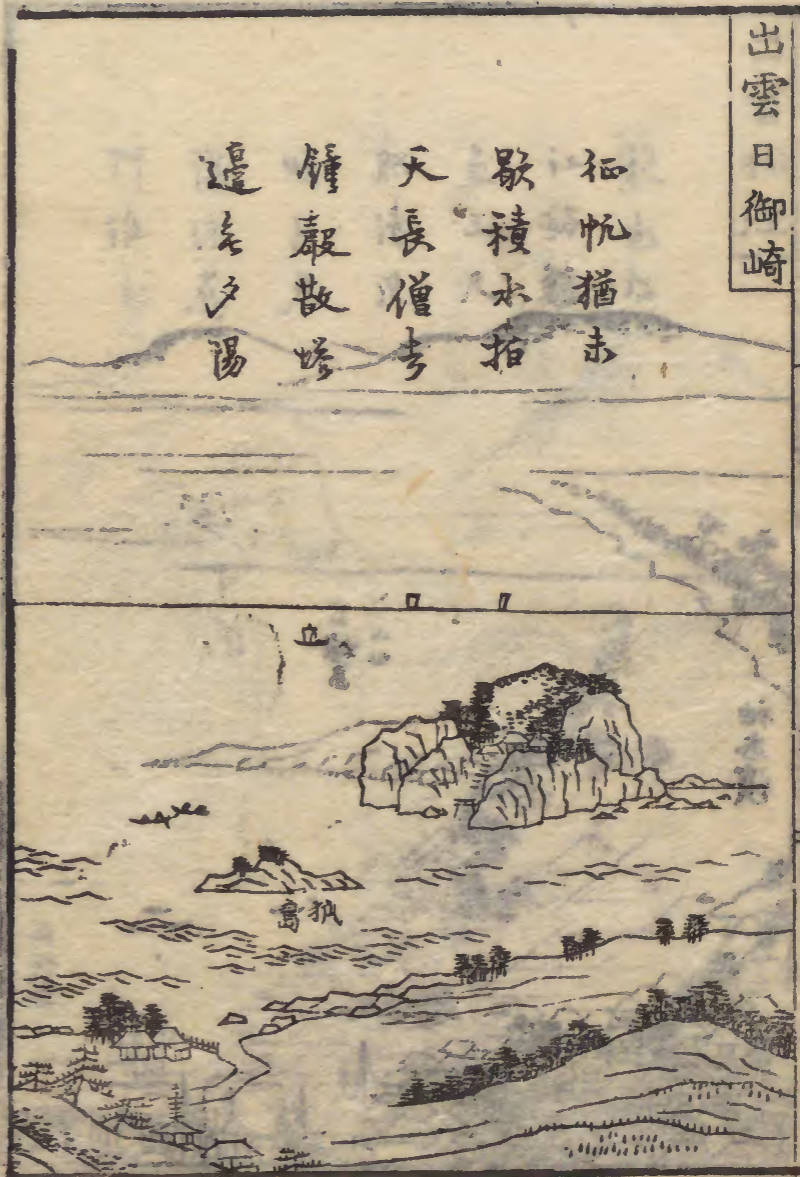 出雲日御崎
征帆猶未
歇積水拍
天長僧寺
鍾聲散
邊多夕陽
島